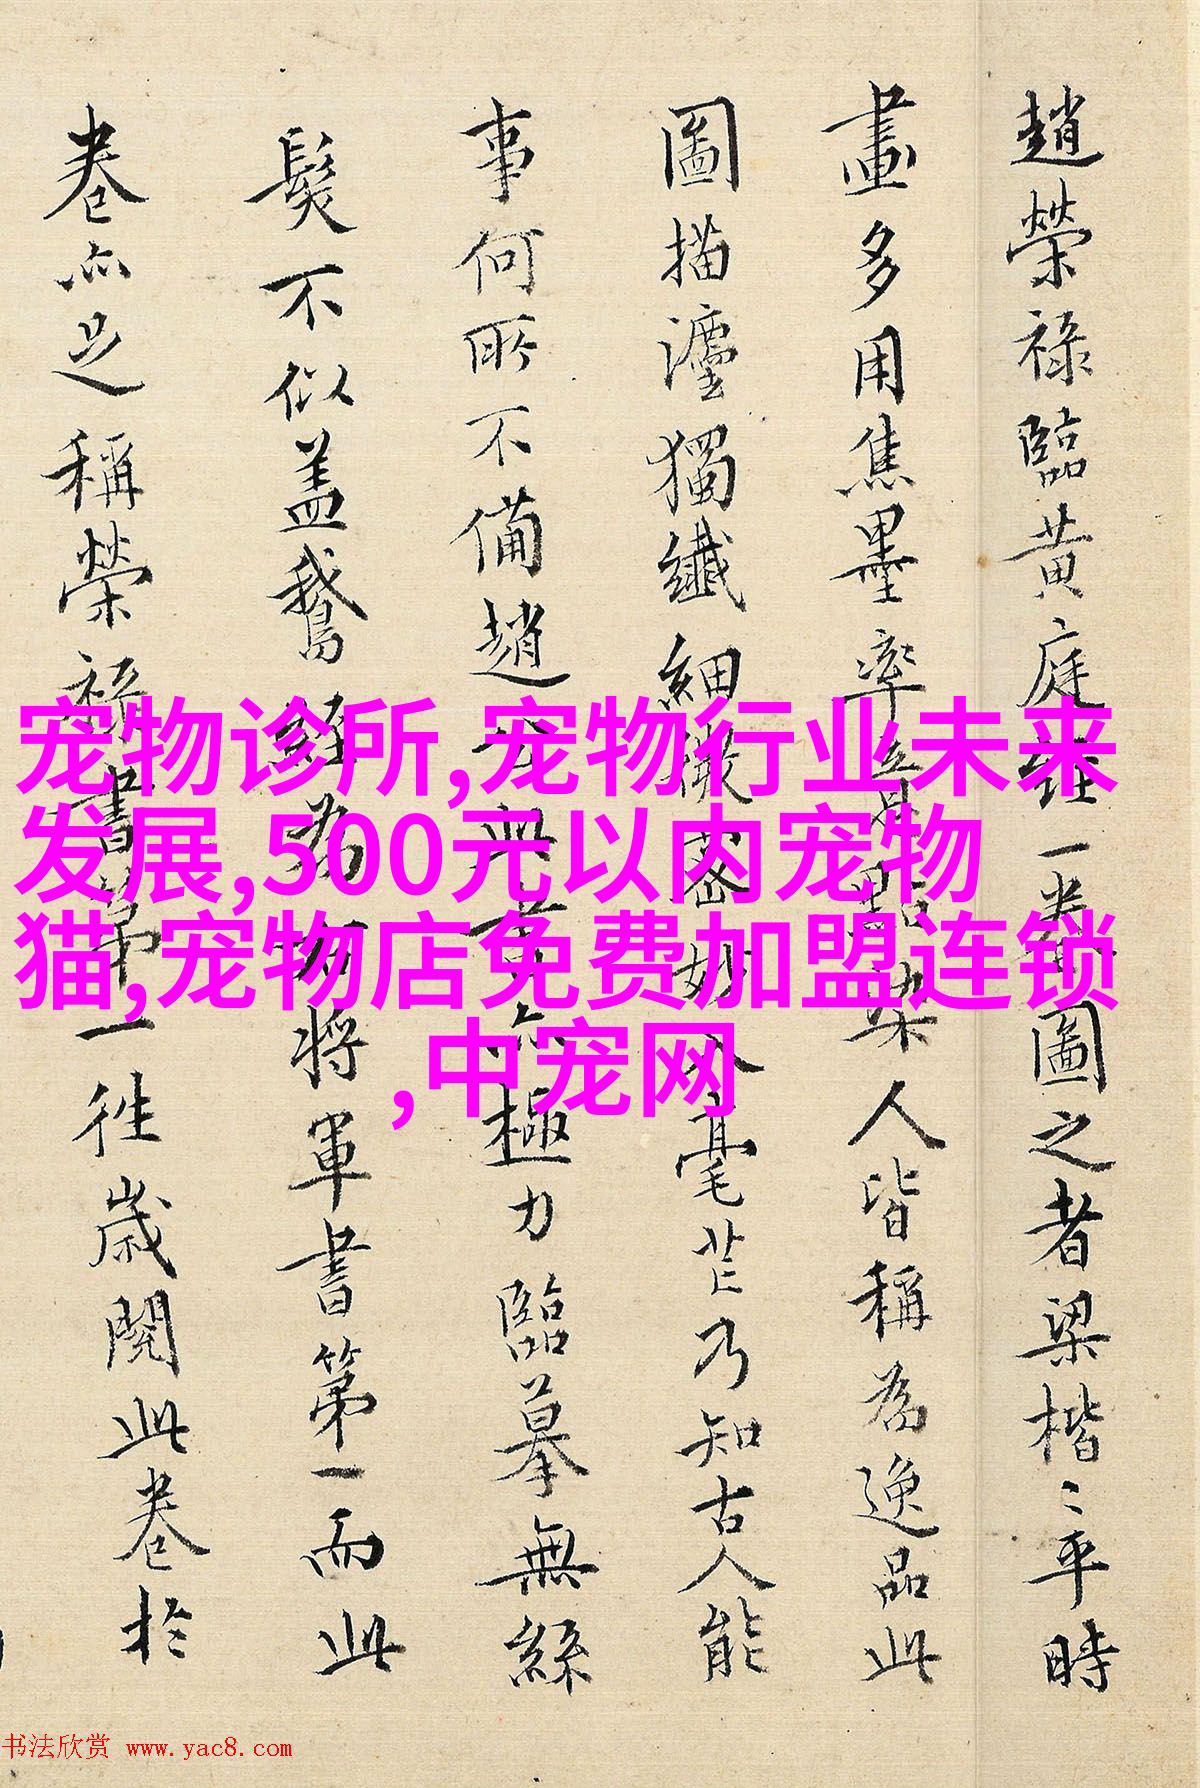 趙榮祿臨黃庭經一卷圖之者梁楷〻平時
畫多用焦墨率人皆稱為逸品此
圖描瀍獨纖細微密妙入毫芒乃知古人能
事何所不備趙極力臨摹無絲
髮不似蓋鵞經為右將軍書第一而此
卷亦足稱榮祿書第一往歲閱此卷於
宠物诊所,宠物行业未来
发展,500元以内宠物
猫,宠物店免费加盟连锁
,中宠网
书法欣赏 www.yac8.com